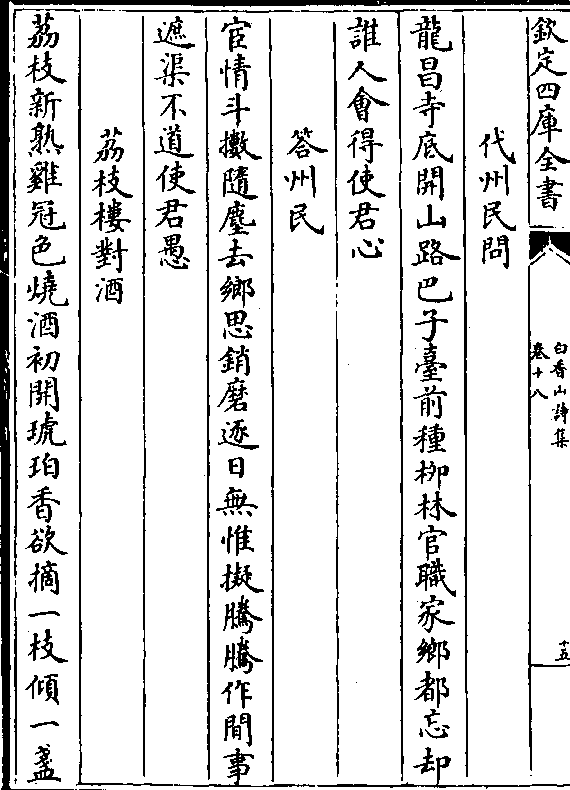 欽定四庫全書
白香山詩集
卷十八
十五
代州民問
龍昌寺底開山路巴子臺前種柳林官職家鄉都忘却
誰人會得使君心
答州民
宦情斗擻隨塵去鄉思銷磨逐日無惟擬騰騰作閒事
遮渠不道使君愚
荔枝樓對酒
荔枝新熟雞冠色燒酒初開琥珀香欲摘一枝傾一盞